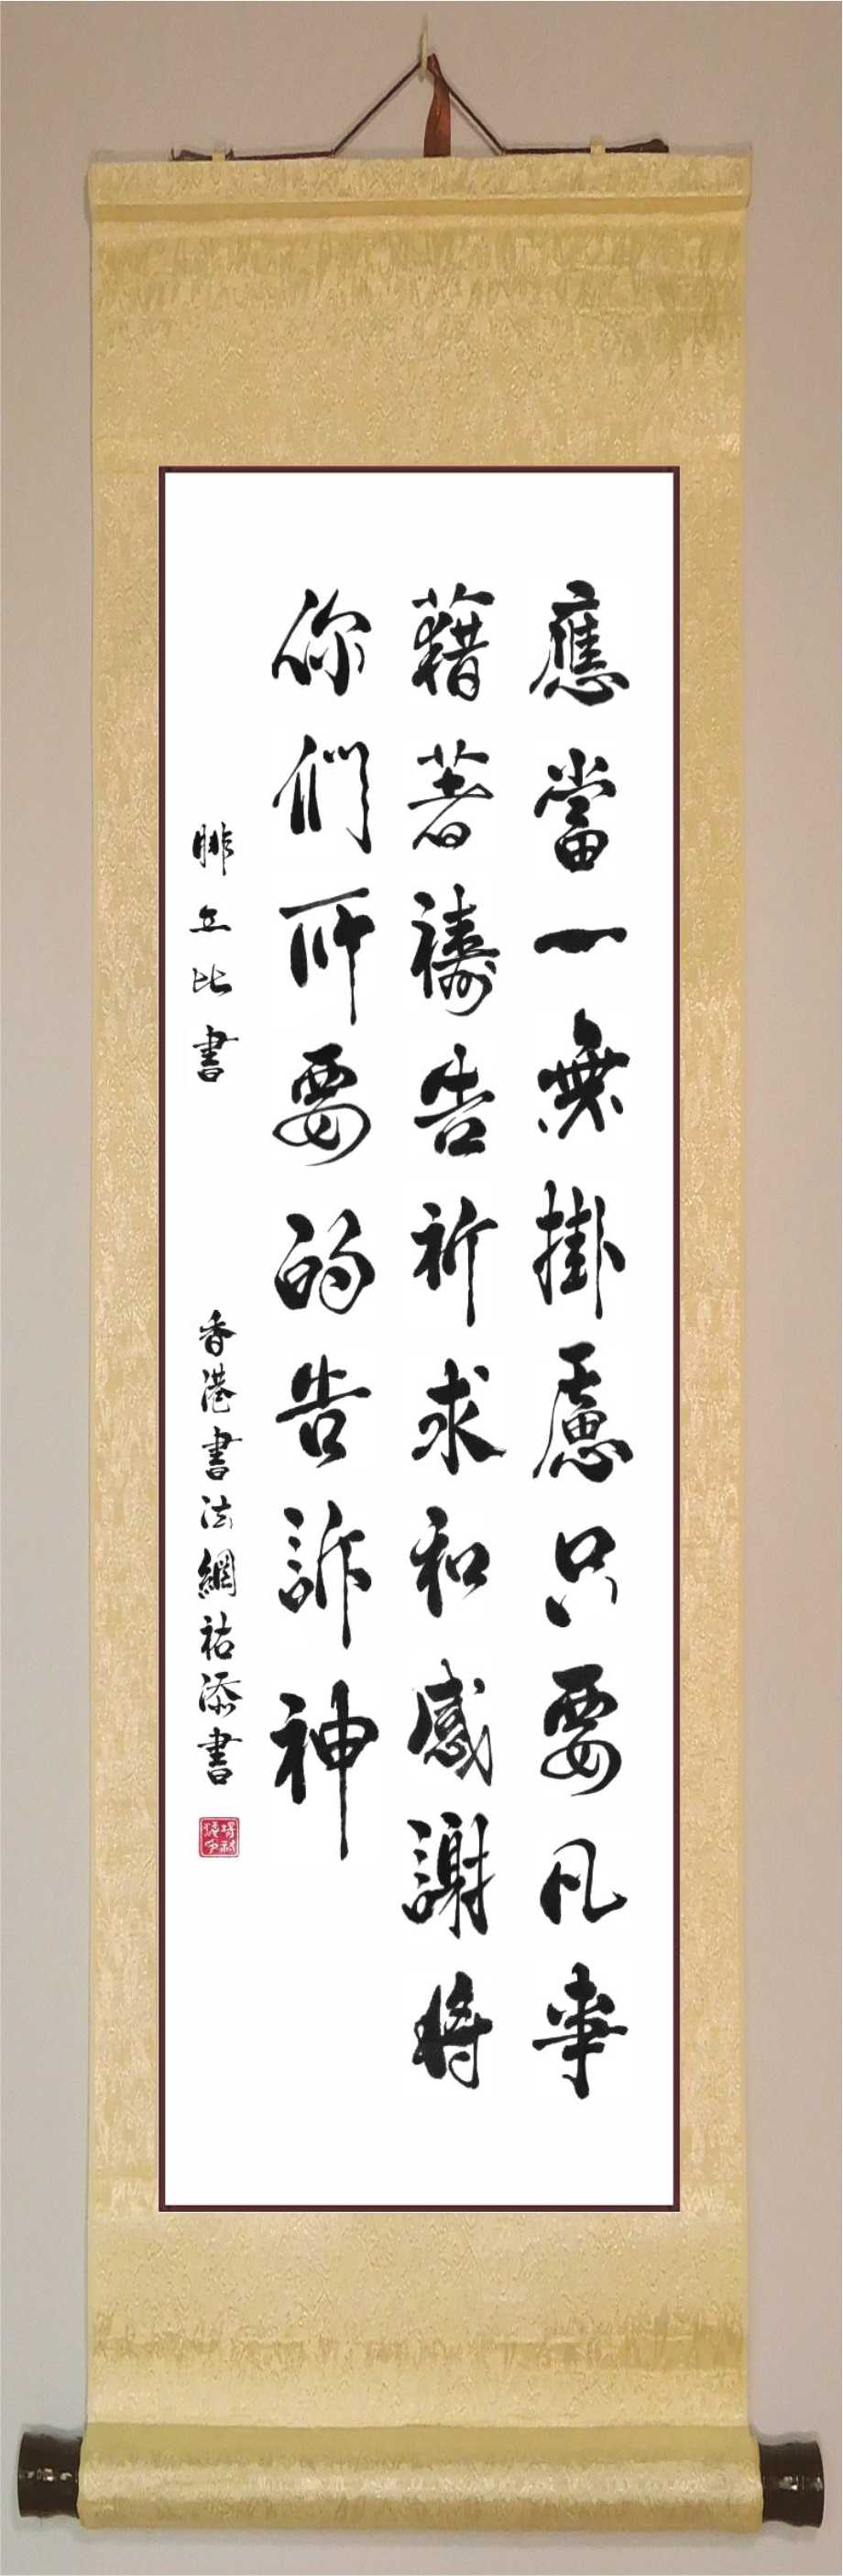 應當一無掛慮只要凡事
藉著禱告祈求和感謝將
你們所要的告訴神
腓立比書
香港書法網祐添書